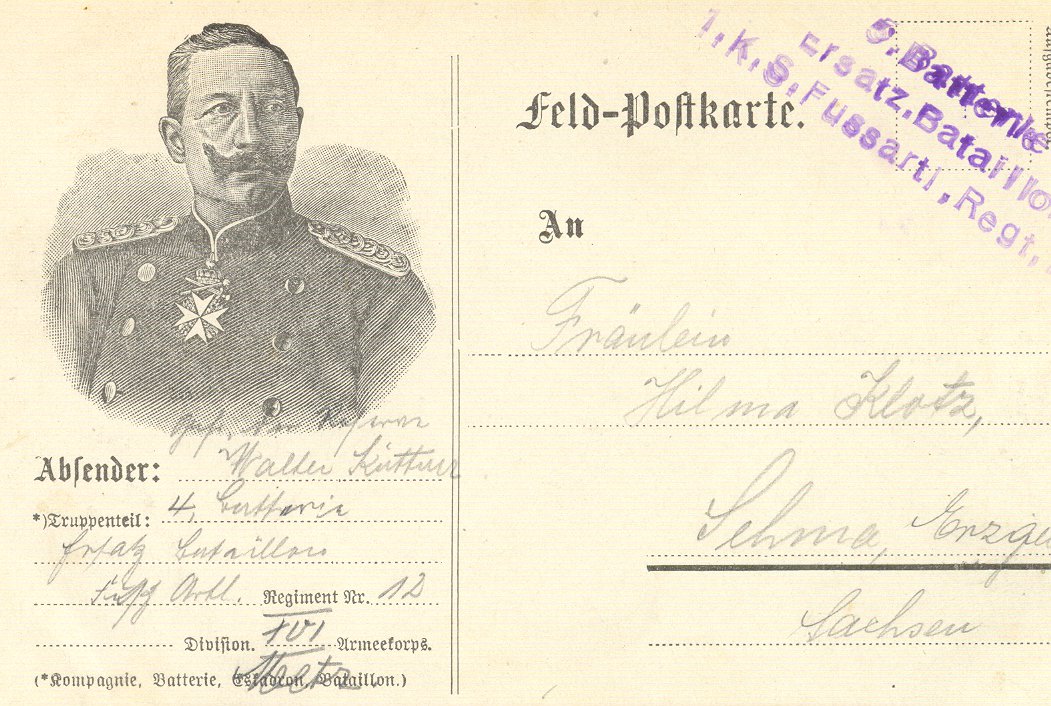 5. Batterie
Ersatz, Bataillo
1, K, S, Fussartl, Regt,
Feld-Postkarte.
An
Fräulein
Hilma Klotz,
Sehma, Erzge
Sachsen
Gefr. der Reserve
Absender: Walter
*)Truppenteil: 4, Batterie
Ersatz Bataillon
Fuß Artl. Regiment Nr. 12
Division. XVI Armeekorps.
Metz.
(*Kompagnie, Batterie, Eskadron, Bataillon.)